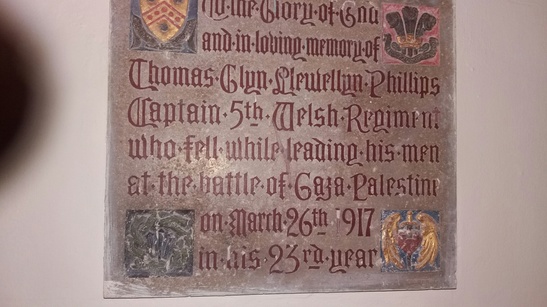 To·the·Glory·of·God
and·in·loving·memory·of
Thomas·Glyn·Llewellyn·Phillips
Captain·5th·Welsh·Regiment
who·fell·while·leading·his·men
at·the·battle·of·Gaza·Palestine
on·March·26th·1917
in·his·23rd·year